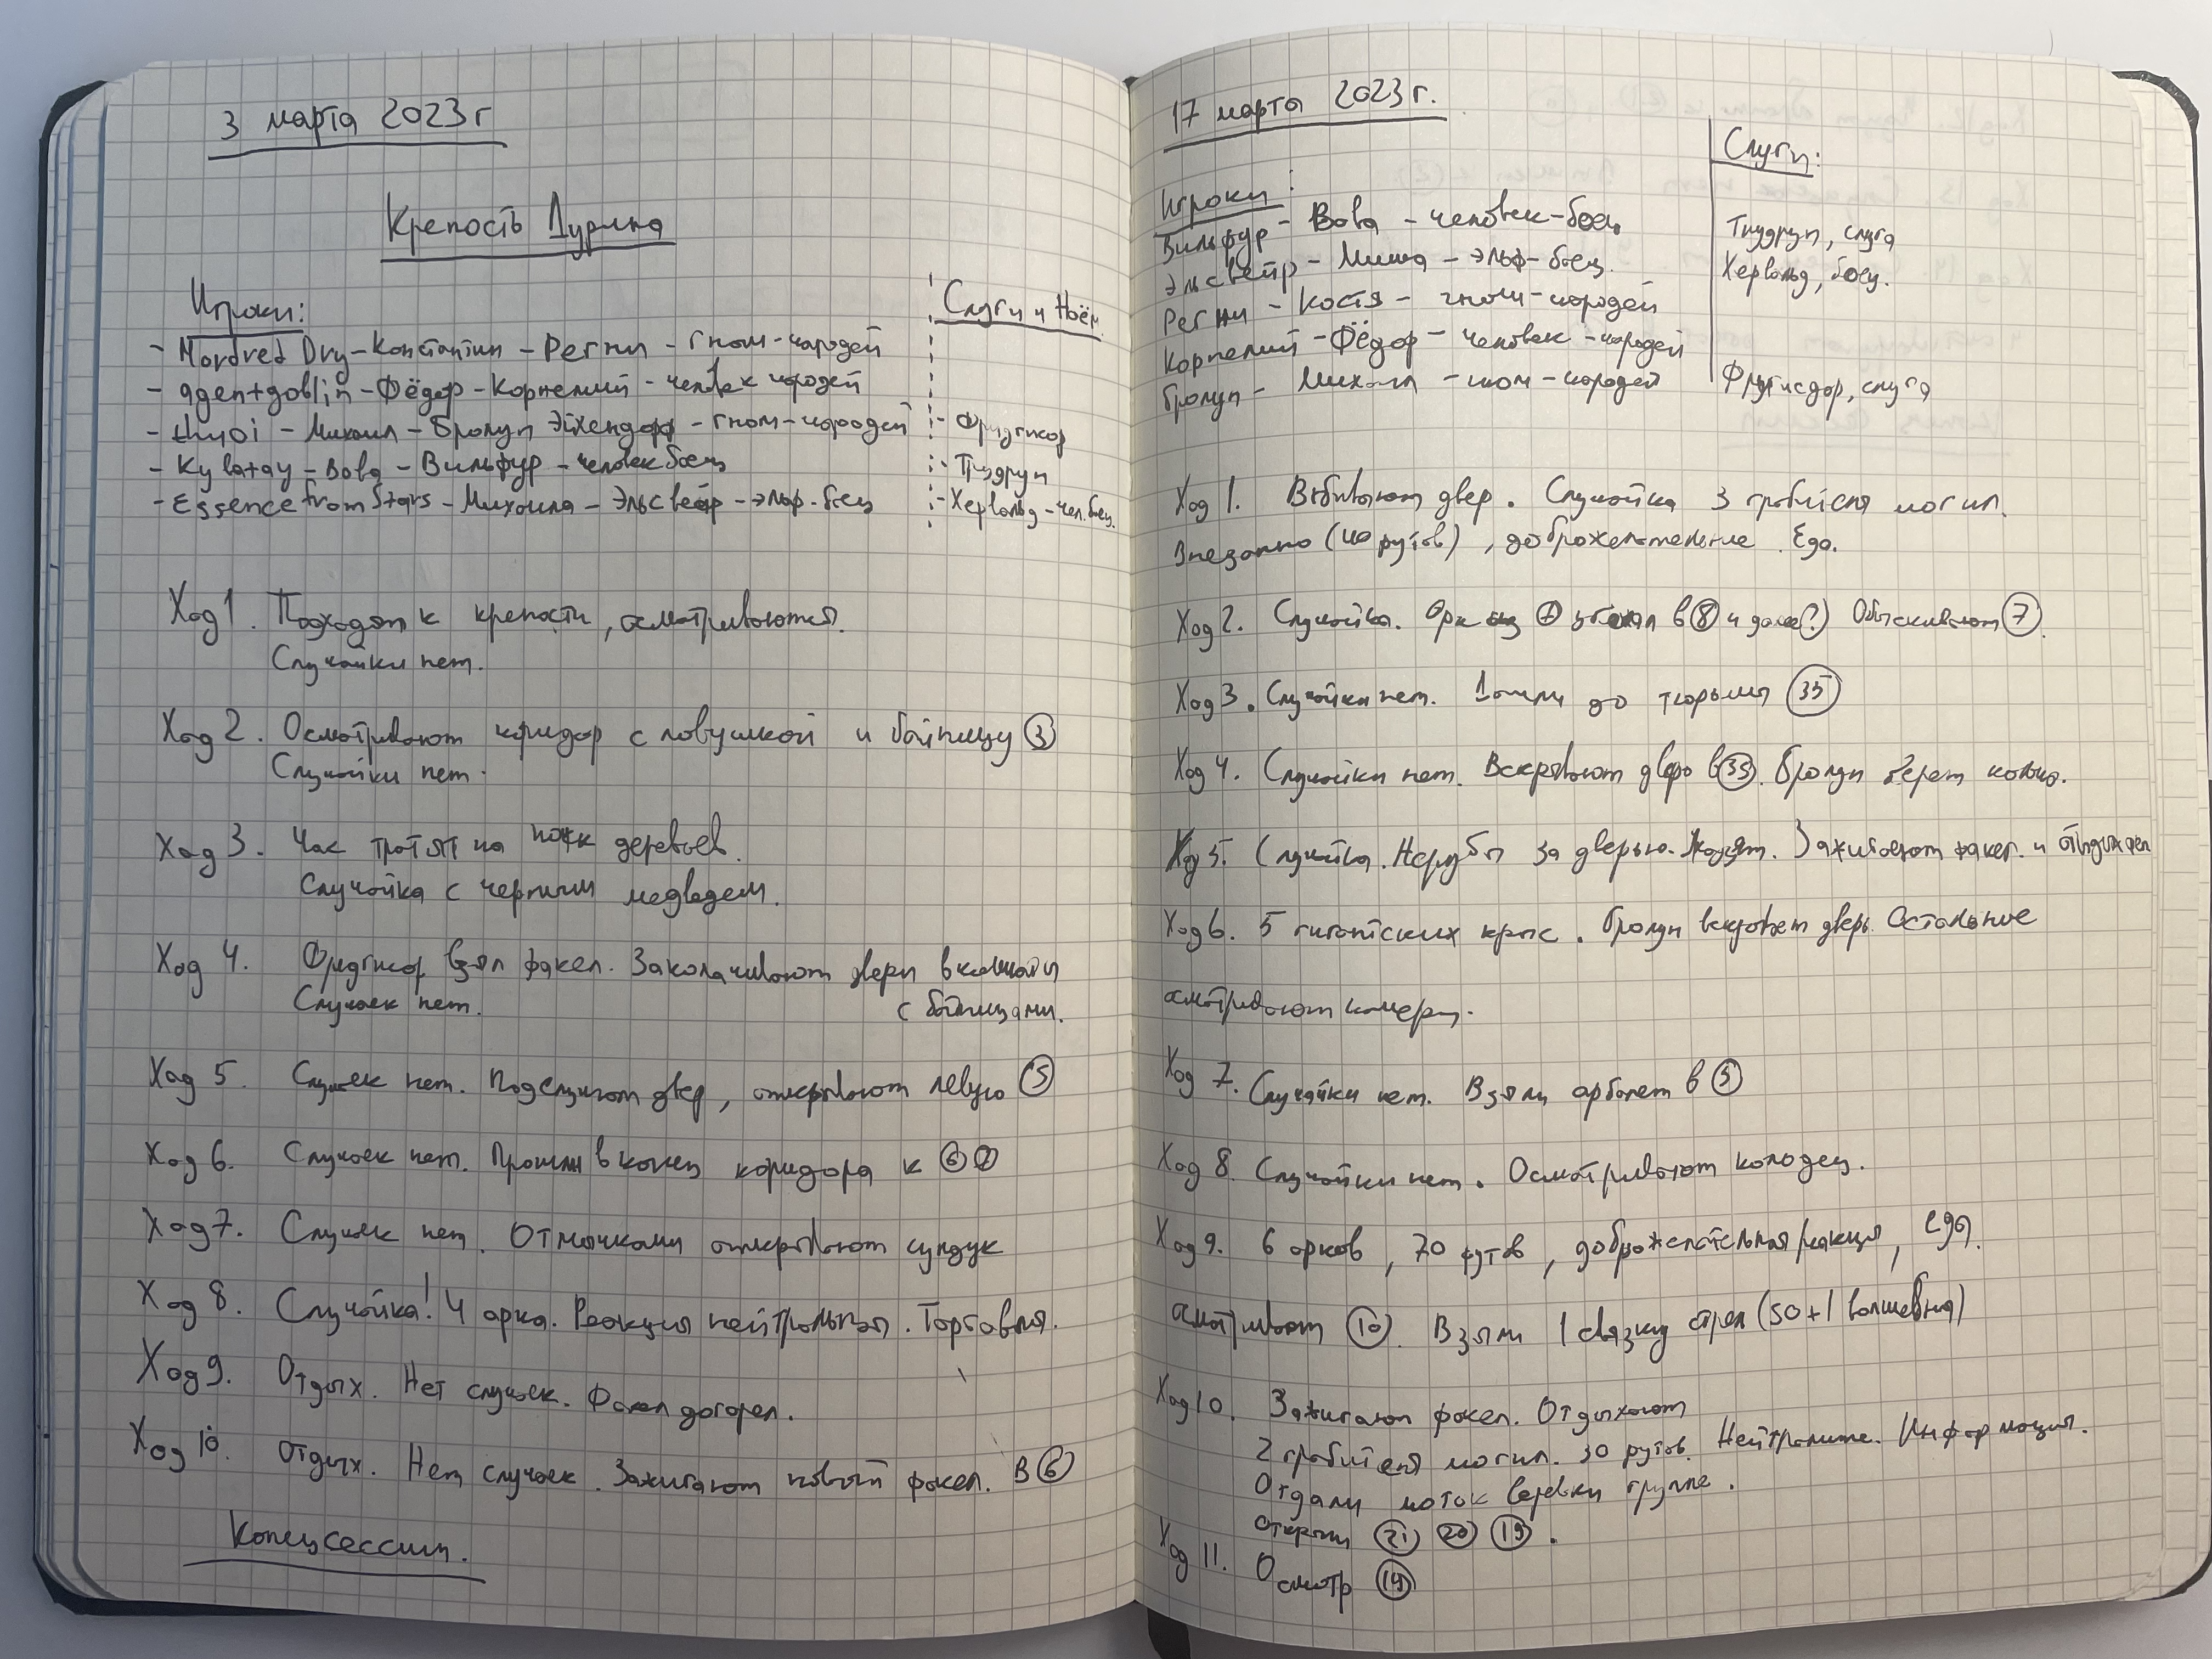 3 марта 2023г
Крепость Дурина
Игроки:
- Mordred Dry - Константин - Регни - гном-чародей
- agent goblin - Фёдор - Корнелий - человек чародей
- Михаил - Бролун Эйхендорф - гном-чародей
- Kylatay - Вова - Вильфур - человек боец
- Essence from Stars - Михаила - Эльсвейр - эльф-боец
Слуги и Наём
- Фридгисдор
- Тнудрун
- Хервальд - чел. боец.
Ход 1. Подходят к крепости, осматриваются.
Случайки нет.
Ход 2. Осматривают коридор с ловушкой и бойницу 3
Случайки нет.
Ход 3. Час тратят на поиск деревьев.
Случайка с черным медведем.
Ход 4. взял факел. Заколачивают двери в комнаты
Случаек нет. с бойницами.
Ход 5. Случаек нет. Подслушают двер, открывают левую 5
Ход 6. Случаек нет. Прошли в конец коридора к 6 7
Ход 7. Случаек нет. Отмычками открывают сундук
Ход 8. Случайка! 4 орка. Реакция нейтральная. Торговля.
Ход 9. Отдых. Нет случаек. Факел догорел.
Ход 10. Отдых. Нет случаек. Зажигают новый факел. В 6
Конец сессии.
17 марта 2023г.
Игроки:
Вильфур - Вова - человек-боец
Эльсвейр - Миша - эльф-боец.
Регни - Костя - гном-чародей
Корнелий - Фёдор - человек-чародей
Бролун - Михаил - гном-чародей
Слуги:
Тнудрун, слуга
Хервальд, боец.
Фридгисдор, слуга
Ход 1. Взбивают двер. Случайка 3 грабителя могил.
Внезапно (40 футов), доброжелательные. Еда.
Ход 2. Случайка. Орк из 7 убежал в 8 и далее?) Обыскивают 7.
Ход 3. Случайки нет. Дошли до тюрьмы 35
Ход 4. Случайки нет. Вскрывают дверь в 35. Бролун берет кольцо.
Ход 5. Случайка. за дверью. Уходят. Зажигают факел. и отдыхают
Ход 6. 5 гигантских крыс. Бролун вскрывает дверь. Остальные
осматривают камеры.
Ход 7. Случайки нет. Взяли арбалет в 5
Ход 8. Случайки нет. Осматривают колодец.
Ход 9. 6 орков, 70 футов, доброжелательная реакция, еда.
осматривают 10. Взяли 1 связку стрел (50+1 волшебная)
Ход 10. Зажигают факел. Отдыхают
2 грабителя могил. 30 футов. Нейтральные. Информация.
Отдали моток веревки группе.
открыли 21 20 19.
Ход 11. Осмотр 19